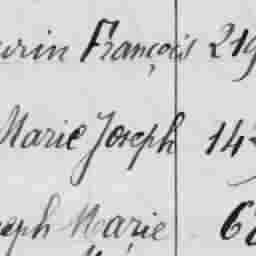 urin François 219
Marie Joseph 14
seph Marie 6